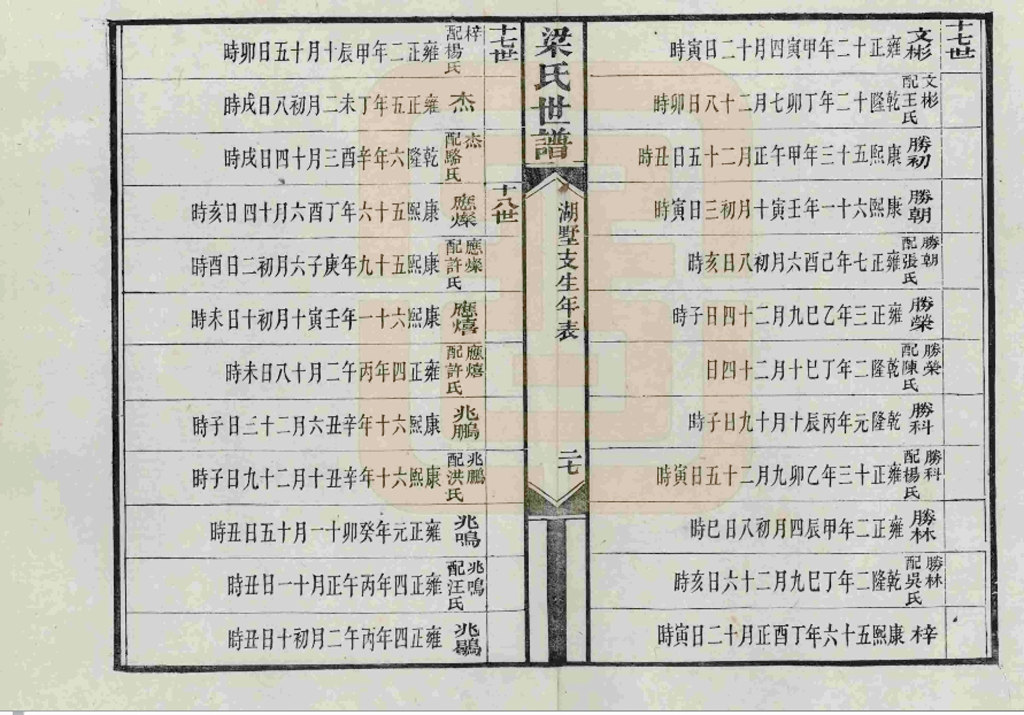 十七世
文彬 雍正十二年甲寅四月十二日寅時
文彬配王氏 乾隆十二年丁卯七月二十八日卯時
勝初 康熙五十三年甲午正月二十五日丑時
勝朝 康熙六十一年壬寅十月初三日寅時
勝朝配張氏 雍正七年己酉六月初八日亥時
勝榮 雍正三年乙巳九月二十四日子時
勝榮配陳氏 乾隆二年丁巳十月二十四日
勝科 乾隆元年丙辰十月十九日子時
勝科配楊氏 雍正十三年乙卯九月二十五日寅時
勝林 雍正二年甲辰四月初八日巳時
勝林配吳氏 乾隆二年丁巳九月二十六日亥時
梓 康熙五十六年丁酉正月十二日寅時
梁氏世譜
湖墅支生年表
二七
十七世
梓配楊氏 雍正二年甲辰十月十五日卯時
杰 雍正五年丁未二月初八日戌時
杰配駱氏 乾隆六年辛酉三月十四日戌時
十八世
應燦 康熙五十六年丁酉六月十四日亥時
應燦配許氏 康熙五十九年庚子六月初二日酉時
應熺 康熙六十一年壬寅十月初十日未時
應熺配許氏 雍正四年丙午二月十八日未時
兆鵬 康熙六十年辛丑六月二十三日子時
兆鵬配洪氏 康熙六十年辛丑十月二十九日子時
兆鳴 雍正元年癸卯十一月十五日丑時
兆鳴配汪氏 雍正四年丙午正月十一日丑時
兆 雍正四年丙午二月初十日丑時